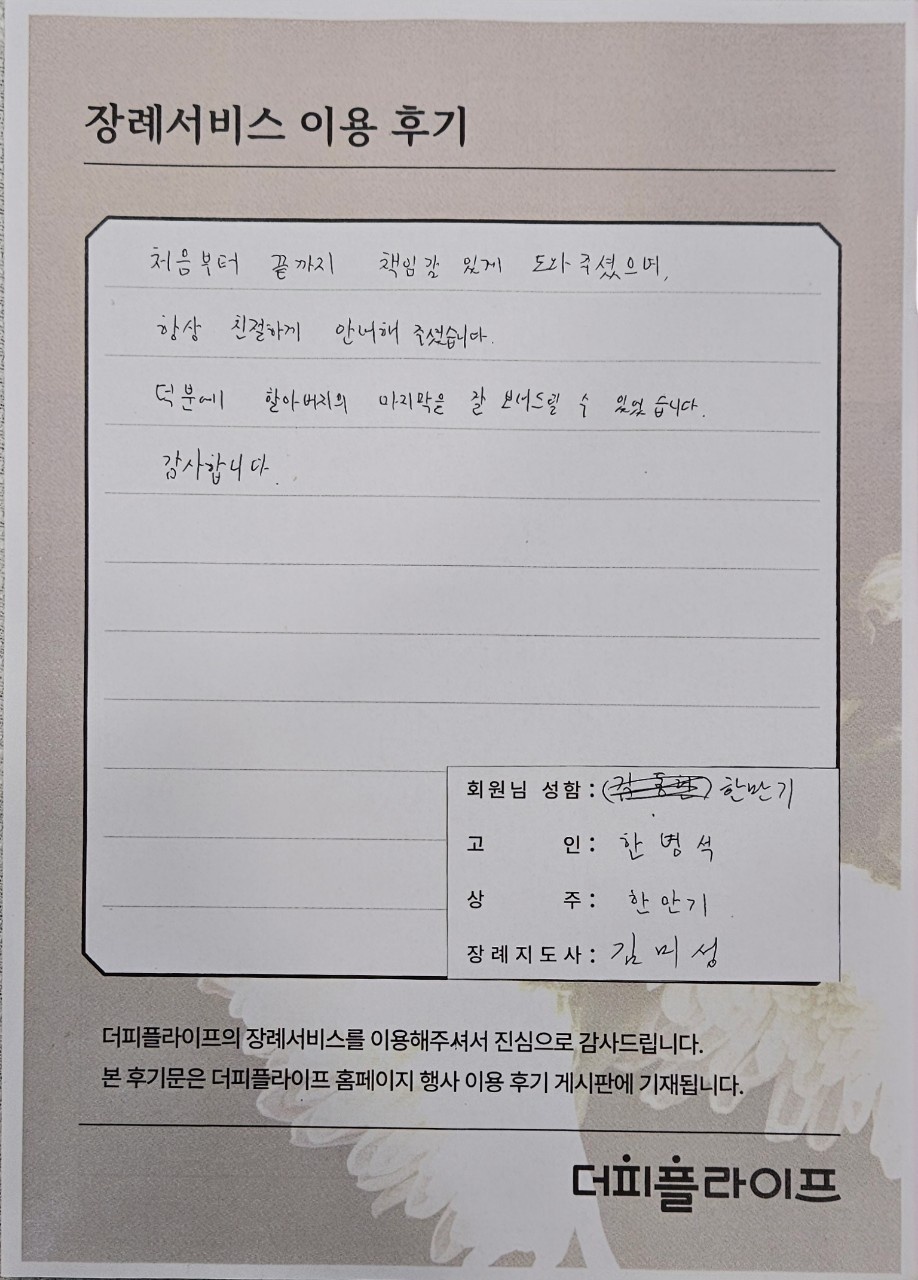 장례서비스 이용 후기
처음부터 끝까지 책임감 있게 도와주셨으며,
항상 친절하게 안내해 주셨습니다.
덕분에 할아버지의 마지막을 잘 보내드릴 수 있었습니다.
감사합니다.
회원님 성함 : 한만기
고 인 : 한병석
상 주 : 한만기
장례지도사 : 김미성
더피플라이프의 장례서비스를 이용해주셔서 진심으로 감사드립니다.
본 후기문은 더피플라이프 홈페이지 행사 이용 후기 게시판에 기재됩니다.
더피플라이프